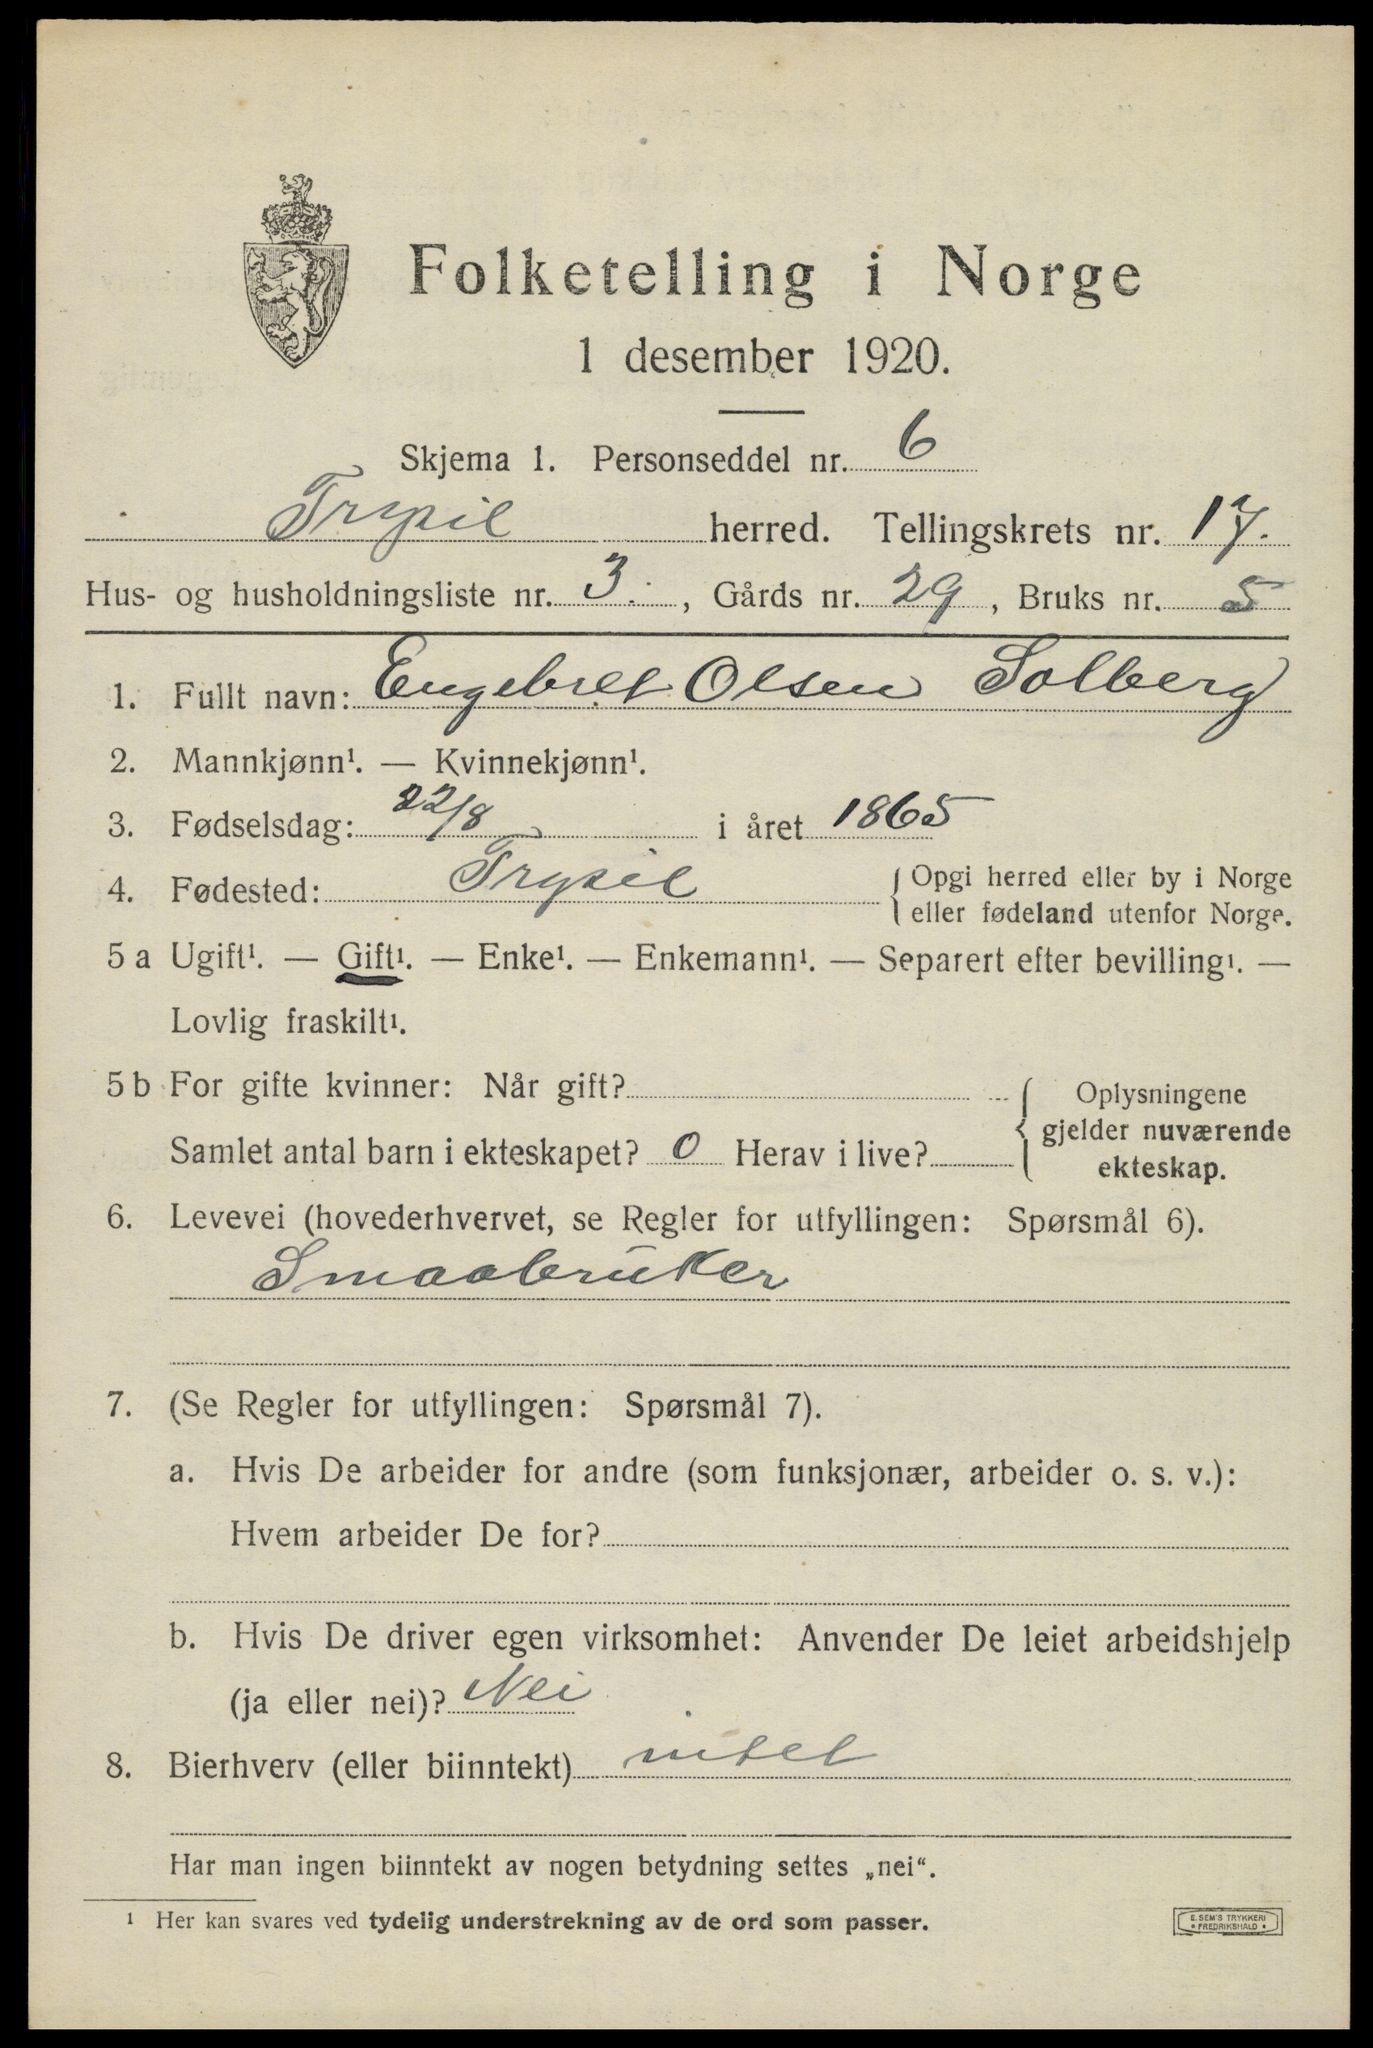 Folketelling i Norge
1 desember 1920.
Skjema 1. Personseddel nr. 6
Trysil herred. Tellingskrets nr. 17.
Hus- og husholdningsliste nr. 3., Gårds nr. 29, Bruks nr. 5
1. Fullt navn: Engebret Olsen Solberg
2. Mannkjønn¹. — Kvinnekjønn¹.
3. Fødselsdag: 22/8 i året 1865
4. Fødested: Trysil { Opgi herred eller by i Norge
eller fødeland utenfor Norge.
5 a Ugift¹. — Gift¹. — Enke¹. — Enkemann¹. — Separert efter bevilling¹. —
Lovlig fraskilt¹.
5 b For gifte kvinner: Når gift? { Oplysningene
gjelder nuværende
Samlet antal barn i ekteskapet? 0 Herav i live? ekteskap.
6. Levevei (hovederhvervet, se Regler for utfyllingen: Spørsmål 6).
Smaabruker
7. (Se Regler for utfyllingen: Spørsmål 7).
a. Hvis De arbeider for andre (som funksjonær, arbeider o. s. v.):
Hvem arbeider De for?
b. Hvis De driver egen virksomhet: Anvender De leiet arbeidshjelp
(ja eller nei)? Nei
8. Bierhverv (eller biinntekt) intet
Har man ingen biinntekt av nogen betydning settes „nei“.
¹ Her kan svares ved tydelig understrekning av de ord som passer.
E. SEM'S TRYKKERI
• FREDRIKSHALD •